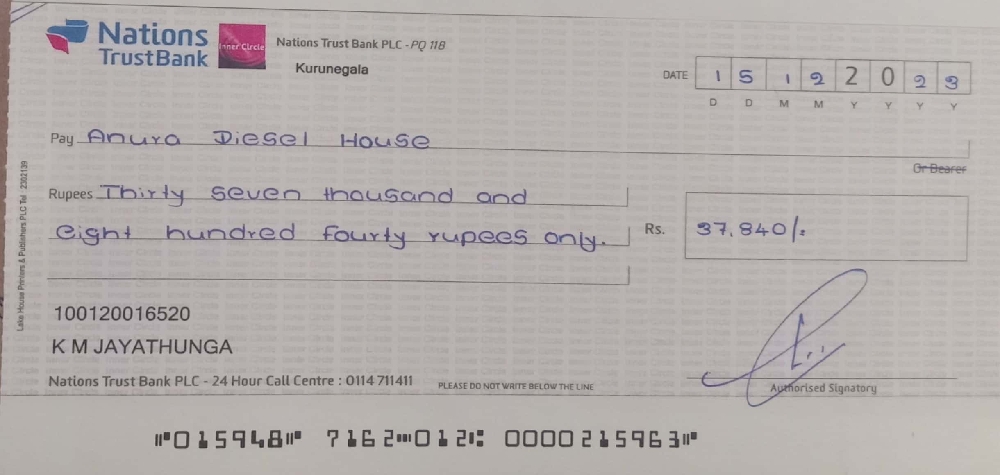 Nations
TrustBank
Inner Circle
Nations Trust Bank PLC - PQ 118
Kurunegala
DATE 1 5 1 2 2 0 2 3
D D M M Y Y Y Y
Pay Anura Diesel House
Or Bearer
Rupees Thirty seven thousand and
eight hundred fourty rupees only.
Rs. 37,840/=
Lake House Printers & Publishers PLC Tel 2302139
100120016520
K M JAYATHUNGA
Nations Trust Bank PLC - 24 Hour Call Centre : 0114 711411
PLEASE DO NOT WRITE BELOW THE LINE
Authorised Signatory
⑈015948⑈ 7162⑉012⑆ 0000215963⑈